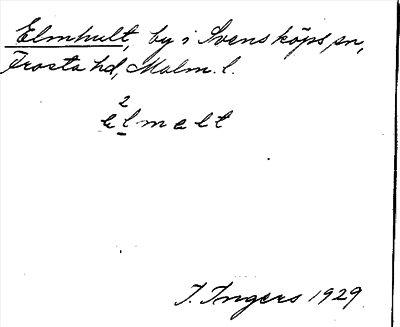 Elmhult, by i Svensköps sn,
Frosta hd, Malm. l.
2
elmelt
I. Ingers 1929